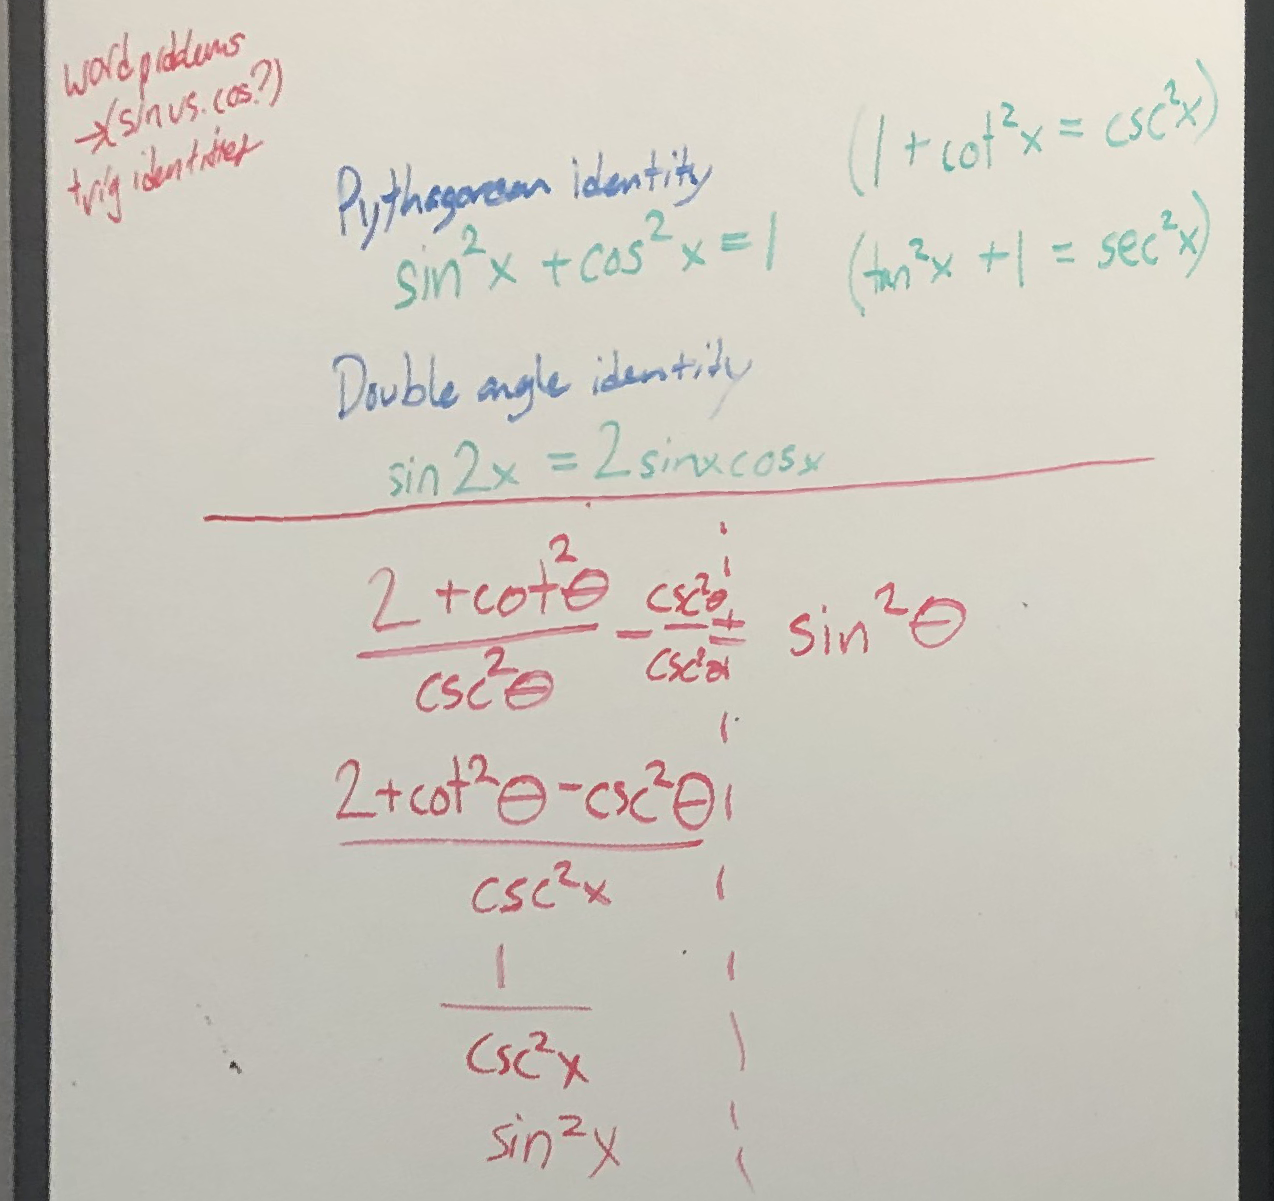 word problems
→(sin vs. cos?)
trig identities
Pythagorean identity
sin²x + cos²x = 1
(1 + cot²x = csc²x)
(tan²x + 1 = sec²x)
Double angle identity
sin 2x = 2 sinx cosx
2 + cot²θ / csc²θ - csc²θ / csc²θ = sin²θ
2 + cot²θ - csc²θ
csc²x
1
csc²x
sin²x